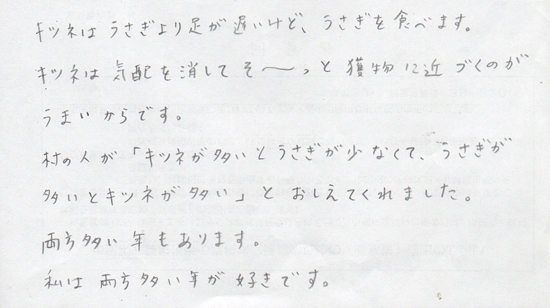 キツネはうさぎより足が遅いけど、うさぎを食べます。
キツネは気配を消してそ〜っと獲物に近づくのが
うまいからです。
村の人が「キツネが多いとうさぎが少なくて、うさぎが
多いとキツネが多い」とおしえてくれました。
両方多い年もあります。
私は両方多い年が好きです。